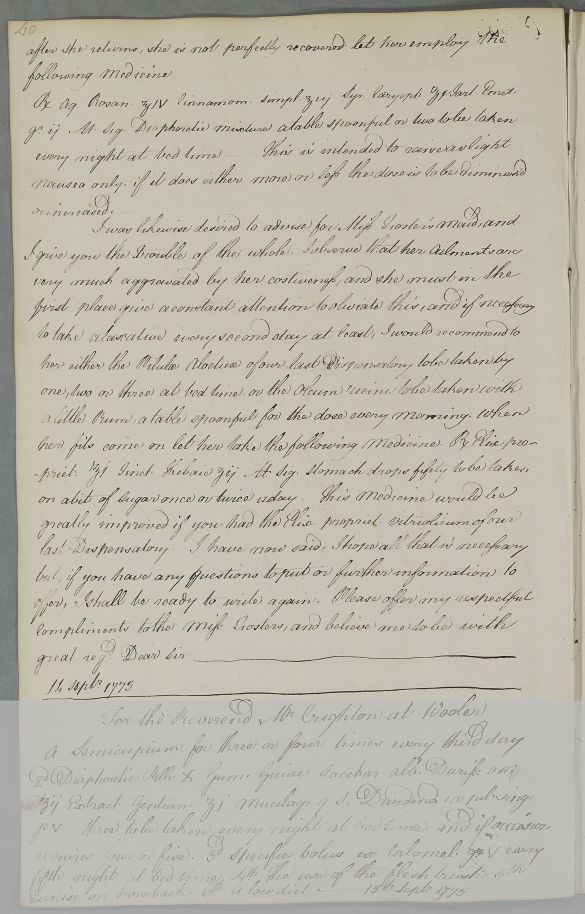 40
after she returns, she is not perfectly recovered let her employ the
following Medicine
℞ Aq Rosar. ℥iv Cinnamom. simpl. ℥ij Syr. Caryoph ℥i Tart Emet.
gr ij M Sig. Diaphoretic mixture a table spoonful or two to be taken
every night at bed time — This is intended to raise a slight
nausea only. if it does either more or less the dose is to be diminised
or increased. —
I was likewise desired to advise for Miss Trosters Maid, and
I give you the Trouble of the whole. I observe that her Ailments are
very much aggravated by her costiveness, and she must in the
first place give a constant attention to obviate this, and if necessary
to take a laxative every second day at least, I would recommend to
her either the Pilulæ Aloeticæ of our last Dispensatory to be taken by
one, two or three at bed time, or the Oleum ricini to be taken with
a little Rum, a table spoonful for the dose every Morning. When
her fits come on let her take the following Medicine. ℞ Elix. pro-
-priet. ℥i Tinct Thebaic ʒij M Sig. Stomach drops fifty to be taken
on a bit of sugar once or twice a day. This Medicine would be
greatly improved if you had the Elix propriet. vitriolicum of our
last Dispensatory. I have now said, I hope all that is necessary
but, if you have any Questions to put or further information to
offer, I shall be ready to write again. Please offer my respectful
Compliments to the Miss Trosters, and believe me to be with
great regd Dear Sir
14 Septr. 1775
For the Reverend Mr. Crighton at Wooler
A Semicupium for three or four times every third day
2d Diaphoretic Pills ℞ Gum. Guiac Sacchar. alb. Duriss.
Extract Gentian. ʒi Mucilag. q. S. Dividend in pil. sing.
gr v three to be taken every night at bed time and if occasion
requires four or five. 3d specific bolus ex Calomel. gr V every
fifth night at bed time, 4th the use of the flesh brush 5th
Exercise on horseback. 6th A low diet — 15th Septr. 1775